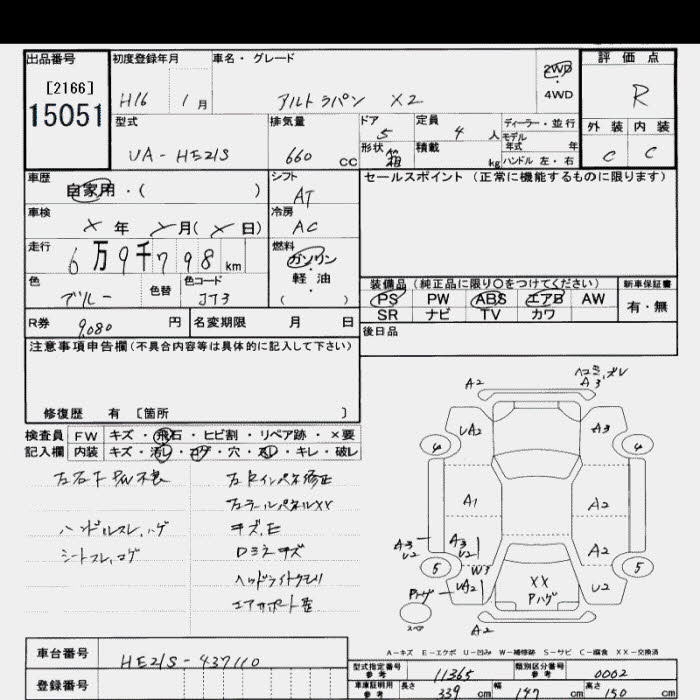 出品番号 初度登録年月 車名・グレード 2WD 評価点
[2166] H16 1月 アルトラパン X2 4WD R
15051
型式 排気量 ドア 定員 ディーラー・並行 外装 内装
UA-HE21S 660 cc 5 4人 モデル年式 年 C C
形状 箱 積載 kg ハンドル 左・右
車歴 シフト セールスポイント (正常に機能するものに限ります)
自家用・( ) AT
車検 冷房
X年 X月(X日) AC
走行 燃料
6万9千798km ガソリン
軽油
( )
色 色替 色コード
ブルー JT3
装備品(純正品に限り○をつけてください) 新車保証書
PS PW ABS エアB AW 有・無
SR ナビ TV カワ
R券 9,080円 名変期限 月 日 後日品
注意事項申告欄(不具合内容等は具体的に記入して下さい)
修復歴 有 [箇所 ]
検査員 FW キズ・飛石・ヒビ割・リペア跡・×要
記入欄 内装 キズ・汚レ・コゲ・穴・スレ・キレ・破レ
ハンドルスレ,ハゲ
シートスレ,コゲ
キズ,E
ヘッドライトクモリ
A2 A3
UA2 A3
4 4
A1 A2
A3 U2 A3 U2 A2
5 W3 5
Pハゲ UA2 XX Pハゲ U2
スペア
A2
A-キズ E-エクボ U-凹み W-補修跡 S-サビ C-腐食 XX-交換済
車台番号 HE21S-437110
登録番号
型式指定番号 参考 11365 類別区分番号 参考 0002
車庫証明用 参考 長さ 339cm 幅 147cm 高さ 150cm